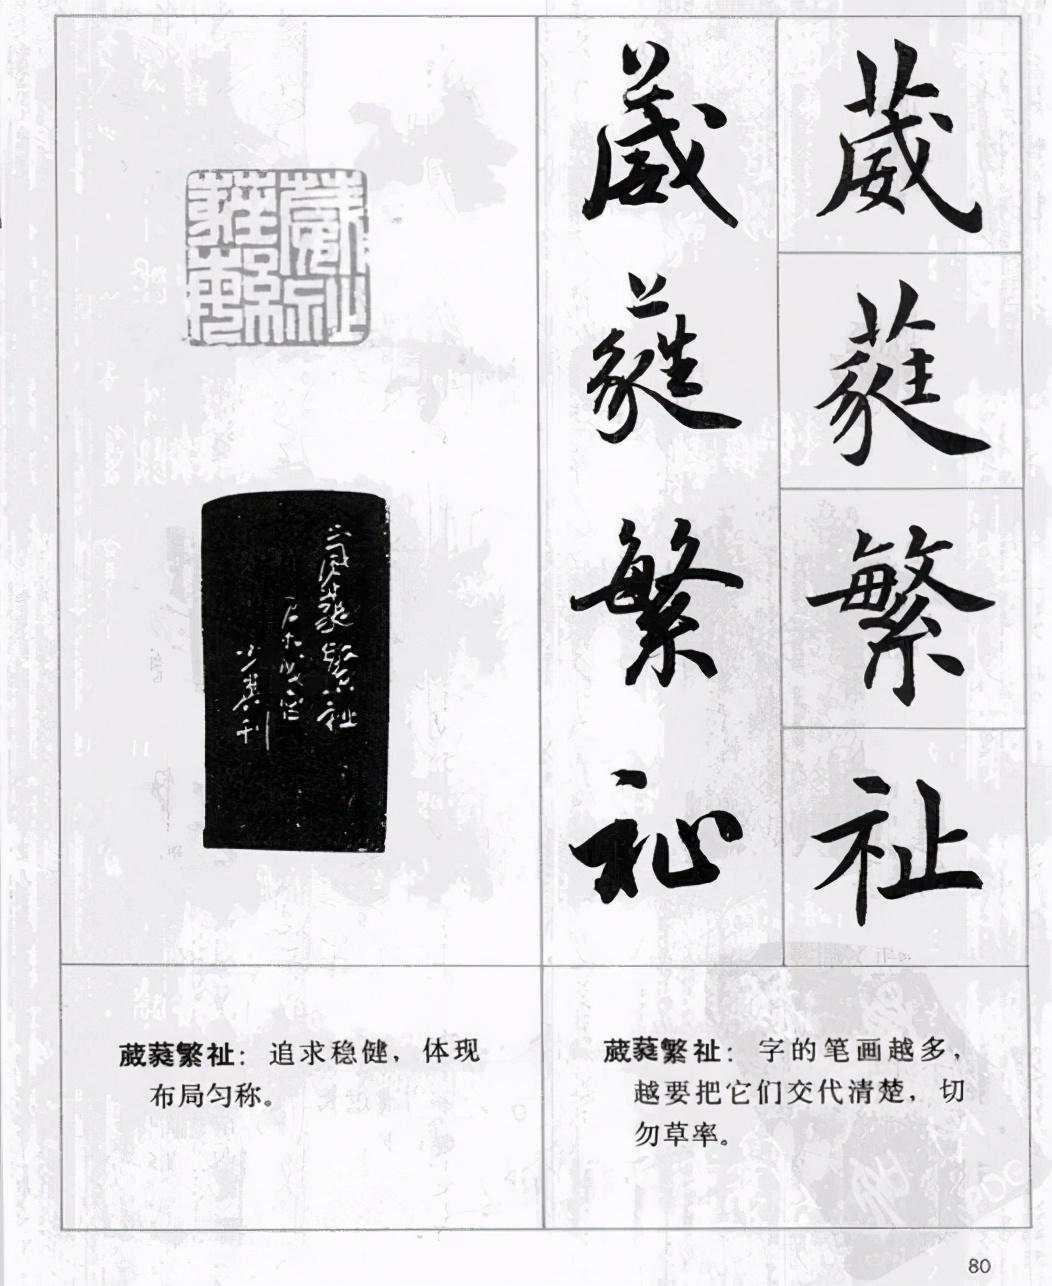 葳蕤繁祉
葳蕤繁祉
葳蕤繁祉：字的笔画越多，
越要把它们交代清楚，切
勿草率。
葳蕤繁祉：追求稳健，体现
布局匀称。
80